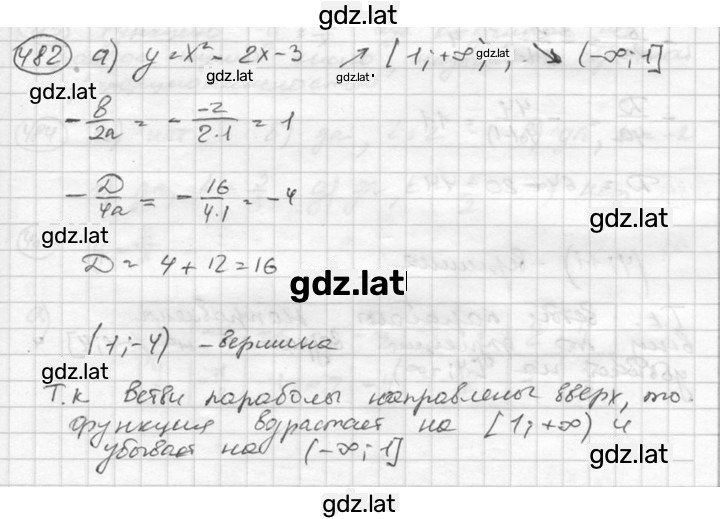 gdz.lat
482. а) y = x² - 2x - 3 ↗ [1; +∞), ↘ (-∞; 1]
gdz.lat
gdz.lat
gdz.lat
gdz.lat
- в/2а = - -2/2·1 = 1
- D/4a = - 16/4·1 = -4
gdz.lat
gdz.lat
D = 4 + 12 = 16
gdz.lat
(1; -4) - вершина
gdz.lat
Т.к ветви параболы направлены вверх, то
функция возрастает на [1; +∞) и
убывает на (-∞; 1]
gdz.lat
gdz.lat
gdz.lat